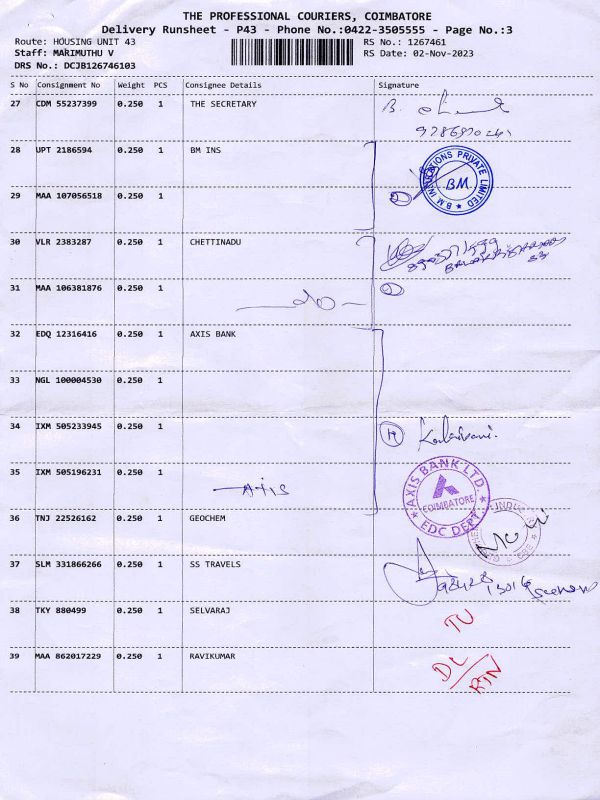 THE PROFESSIONAL COURIERS, COIMBATORE
Delivery Runsheet - P43 - Phone No.:0422-3505555 - Page No.:3
Route: HOUSING UNIT 43
Staff: MARIMUTHU V
DRS No.: DCJB126746103
RS No.: 1267461
RS Date: 02-Nov-2023
S No Consignment No Weight PCS Consignee Details Signature
27 CDM 55237399 0.250 1 THE SECRETARY
28 UPT 2186594 0.250 1 BM INS
B M INDUCATIONS PRIVATE LIMITED
BM
29 MAA 107056518 0.250 1
30 VLR 2383287 0.250 1 CHETTINADU
31 MAA 106381876 0.250 1
32 EDQ 12316416 0.250 1 AXIS BANK
33 NGL 100004530 0.250 1
34 IXM 505233945 0.250 1
Kalaivani.
35 IXM 505196231 0.250 1 Axis
AXIS BANK LTD.
COIMBATORE
EDC DEPT.
36 TNJ 22526162 0.250 1 GEOCHEM
37 SLM 331866266 0.250 1 SS TRAVELS
38 TKY 880499 0.250 1 SELVARAJ
39 MAA 862017229 0.250 1 RAVIKUMAR
DL/RTN